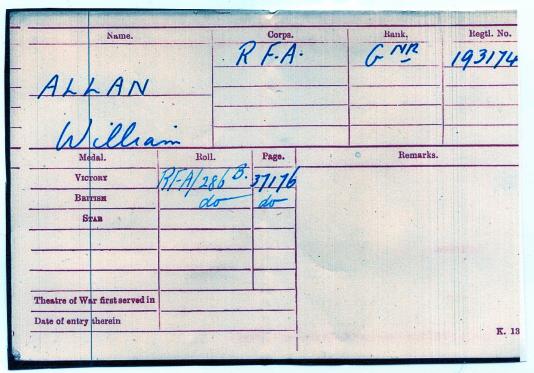 Name. Corps. Rank, Regtl. No.
R F.A. GNR 193174
ALLAN
William
Medal. Roll. Page. Remarks.
VICTORY RFA/286 B. 37176
BRITISH do do
STAR
Theatre of War first served in
Date of entry therein
K. 13